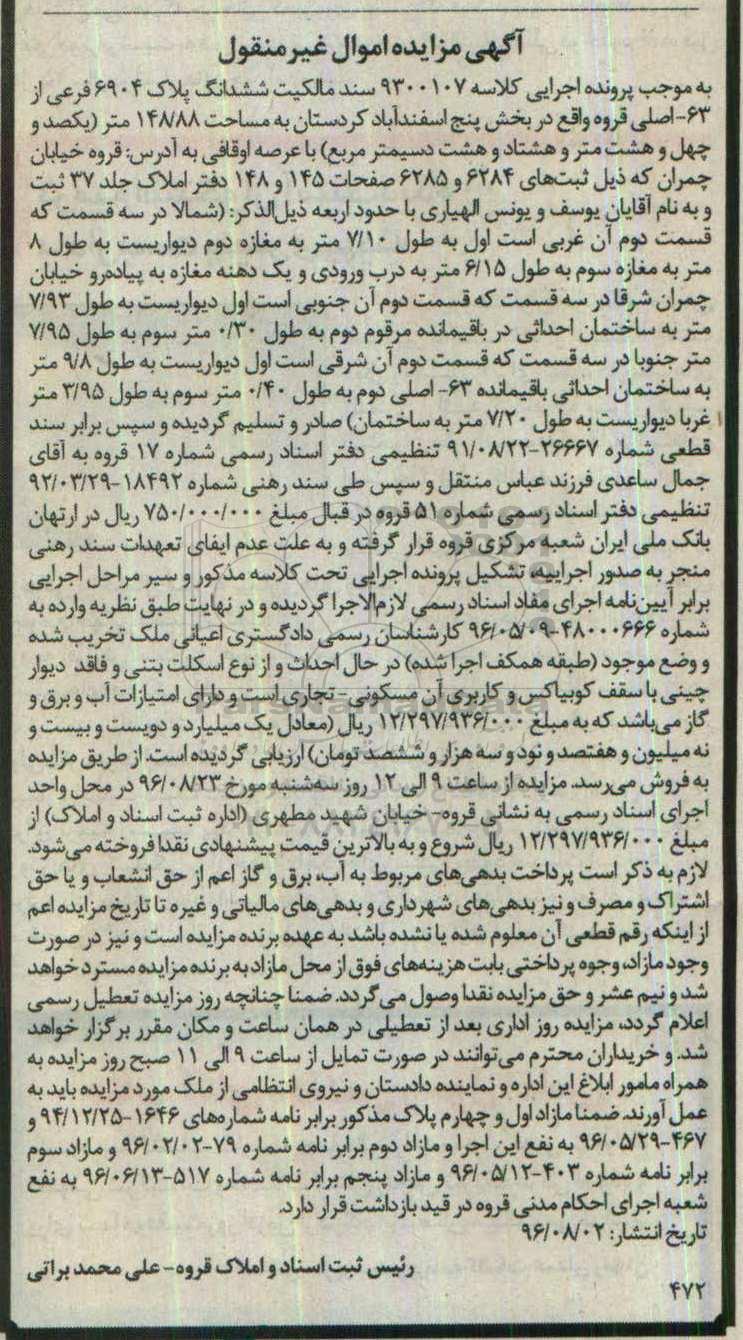 آگهی مزایده اموال غیرمنقول
به موجب پرونده اجرایی کلاسه ۹۳۰۰۱۰۷ سند مالکیت ششدانگ پلاک ۶۹۰۴ فرعی از
۶۳- اصلی قروه واقع در بخش پنج اسفندآباد کردستان به مساحت ۱۴۸/۸۸ متر (یکصد و
چهل و هشت متر و هشتاد و هشت دسیمتر مربع) با عرصه اوقافی به آدرس: قروه خیابان
چمران که ذیل ثبت‌های ۶۲۸۴ و ۶۲۸۵ صفحات ۱۴۵ و ۱۴۸ دفتر املاک جلد ۳۷ ثبت
و به نام آقایان یوسف و یونس الهیاری با حدود اربعه ذیل‌الذکر: (شمالا در سه قسمت که
قسمت دوم آن غربی است اول به طول ۷/۱۰ متر به مغازه دوم دیواریست به طول ۸
متر به مغازه سوم به طول ۶/۱۵ متر به درب ورودی و یک دهنه مغازه به پیاده‌رو خیابان
چمران شرقا در سه قسمت که قسمت دوم آن جنوبی است اول دیواریست به طول ۷/۹۳
متر به ساختمان احداثی در باقیمانده مرقوم دوم به طول ۰/۳۰ متر سوم به طول ۷/۹۵
متر جنوبا در سه قسمت که قسمت دوم آن شرقی است اول دیواریست به طول ۹/۸ متر
به ساختمان احداثی باقیمانده ۶۳- اصلی دوم به طول ۰/۴۰ متر سوم به طول ۳/۹۵ متر
غربا دیواریست به طول ۷/۲۰ متر به ساختمان) صادر و تسلیم گردیده و سپس برابر سند
قطعی شماره ۲۶۶۶۷-۹۱/۰۸/۲۲ تنظیمی دفتر اسناد رسمی شماره ۱۷ قروه به آقای
جمال ساعدی فرزند عباس منتقل و سپس طی سند رهنی شماره ۱۸۴۹۲-۹۲/۰۳/۲۹
تنظیمی دفتر اسناد رسمی شماره ۵۱ قروه در قبال مبلغ ۷۵۰/۰۰۰/۰۰۰ ریال در ارتهان
بانک ملی ایران شعبه مرکزی قروه قرار گرفته و به علت عدم ایفای تعهدات سند رهنی
منجر به صدور اجراییه، تشکیل پرونده اجرایی تحت کلاسه مذکور و سیر مراحل اجرایی
برابر آیین‌نامه اجرای مفاد اسناد رسمی لازم‌الاجرا گردیده و در نهایت طبق نظریه وارده به
شماره ۴۸۰۰۰۶۶۶-۹۶/۰۵/۰۹ کارشناسان رسمی دادگستری اعیانی ملک تخریب شده
و وضع موجود (طبقه همکف اجرا شده) در حال احداث و از نوع اسکلت بتنی و فاقد دیوار
چینی با سقف کوبیاکس و کاربری آن مسکونی- تجاری است و دارای امتیازات آب و برق و
گاز می‌باشد که به مبلغ ۱۲/۲۹۷/۹۳۶/۰۰۰ ریال (معادل یک میلیارد و دویست و بیست و
نه میلیون و هفتصد و نود و سه هزار و ششصد تومان) ارزیابی گردیده است. از طریق مزایده
به فروش می‌رسد. مزایده از ساعت ۹ الی ۱۲ روز سه‌شنبه مورخ ۹۶/۰۸/۲۳ در محل واحد
اجرای اسناد رسمی به نشانی قروه- خیابان شهید مطهری (اداره ثبت اسناد و املاک) از
مبلغ ۱۲/۲۹۷/۹۳۶/۰۰۰ ریال شروع و به بالاترین قیمت پیشنهادی نقدا فروخته می‌شود.
لازم به ذکر است پرداخت بدهی‌های مربوط به آب، برق و گاز اعم از حق انشعاب و یا حق
اشتراک و مصرف و نیز بدهی‌های شهرداری و بدهی‌های مالیاتی و غیره تا تاریخ مزایده اعم
از اینکه رقم قطعی آن معلوم شده یا نشده باشد به عهده برنده مزایده است و نیز در صورت
وجود مازاد، وجوه پرداختی بابت هزینه‌های فوق از محل مازاد به برنده مزایده مسترد خواهد
شد و نیم عشر و حق مزایده نقدا وصول می‌گردد. ضمنا چنانچه روز مزایده تعطیل رسمی
اعلام گردد، مزایده روز اداری بعد از تعطیلی در همان ساعت و مکان مقرر برگزار خواهد
شد. و خریداران محترم می‌توانند در صورت تمایل از ساعت ۹ الی ۱۱ صبح روز مزایده به
همراه مامور ابلاغ این اداره و نماینده دادستان و نیروی انتظامی از ملک مورد مزایده باید به
عمل آورند. ضمنا مازاد اول و چهارم پلاک مذکور برابر نامه شماره‌های ۱۶۴۶-۹۴/۱۲/۲۵ و
۴۶۷-۹۶/۰۵/۲۹ به نفع این اجرا و مازاد دوم برابر نامه شماره ۷۹-۹۶/۰۲/۰۲ و مازاد سوم
برابر نامه شماره ۴۰۳-۹۶/۰۵/۱۲ و مازاد پنجم برابر نامه شماره ۵۱۷-۹۶/۰۶/۱۳ به نفع
شعبه اجرای احکام مدنی قروه در قید بازداشت قرار دارد.
تاریخ انتشار: ۹۶/۰۸/۰۲
رئیس ثبت اسناد و املاک قروه- علی محمد براتی
۴۷۲